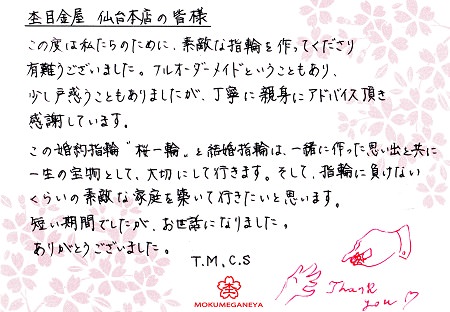 杢目金屋 仙台本店の皆様
この度は私たちのために、素敵な指輪を作ってくださり
有難うございました。フルオーダーメイドということもあり、
少し戸惑うこともありましたが、丁寧に親身にアドバイス頂き
感謝しています。
この婚約指輪“桜一輪”と結婚指輪は、一緒に作った思い出と共に
一生の宝物として、大切にして行きます。そして、指輪に負けない
くらいの素敵な家庭を築いて行きたいと思います。
短い期間でしたが、お世話になりました。
ありがとうございました。
T.M, C.S
Thank
you
MOKUMEGANEYA